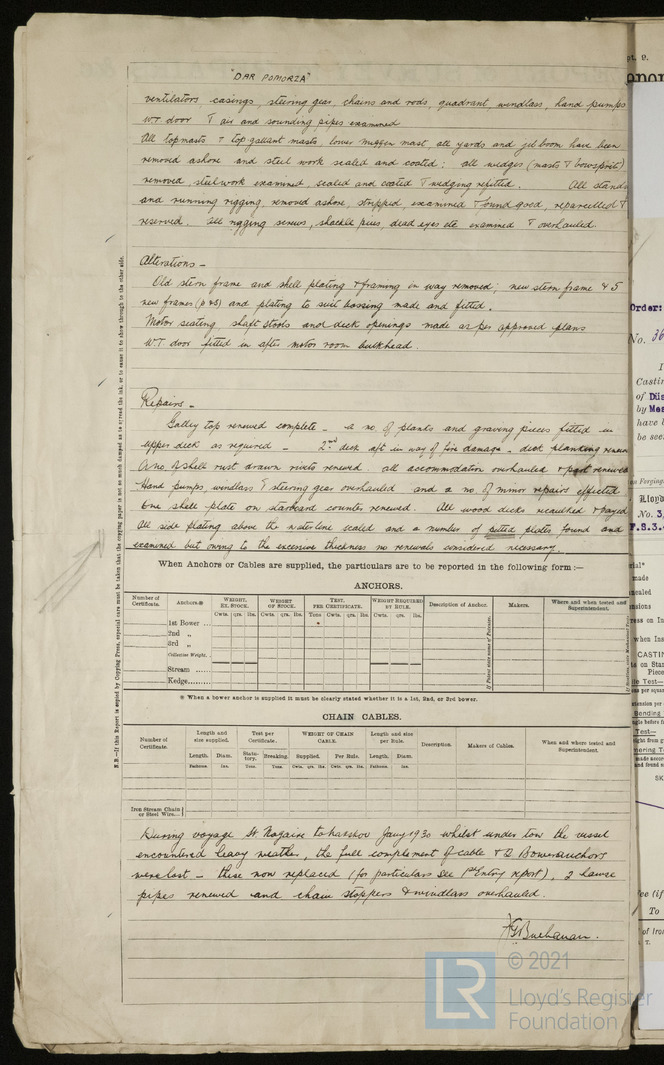 "DAR POMORZA"
ventilators casings, steering gear, chains and rods quadrant, windlass, hand pumps
WT door & air and sounding pipes examined
All topmasts & top gallant masts, lower mizzen mast, all yards and jib boom have been
removed ashore and steel work scaled and coated; all wedges (masts & bowsprit)
removed, steelwork examined, scaled and coated & wedging refitted. All stand
and running rigging removed ashore, stripped examined & found good, reparcelled &
reserved. All rigging screws, shackle pins, dead eyes etc examined & overhauled.
Alterations -
Old stern frame and shell plating & framing in way removed; new stern frame & 5
new frames (P & S) and plating to suit bossing made and fitted.
Motor seating shaft stools and deck openings made as per approved plans
W.T door fitted in after motor room bulkhead.
Repairs -
Galley top renewed complete - a no. of planks and graving pieces fitted in
upper deck as required - 2nd deck aft in way of fire damage - deck planking renew
A no. of shell rust drawn rivets renewed. all accommodation overhauled & part renewed
Hand pumps, windlass & steering gear overhauled and a no. of minor repairs effected
One shell plate on starboard counter renewed. All wood decks recaulked & payed
All side plating above the waterline scaled and a number of pitted plates found and
examined but owing to the excessive thickness no renewals considered necessary.
When Anchors or Cables are supplied, the particulars are to be reported in the following form:—
ANCHORS.
Number of Certificate. Anchors.※ WEIGHT. EX. STOCK. WEIGHT OF STOCK. TEST. PER CERTIFICATE. WEIGHT REQUIRED BY RULE. Description of Anchor. Makers. Where and when tested and Superintendent.
Cwts. qrs. lbs. Cwts. qrs. lbs. Tons Cwts. lbs. Cwts. qrs. lbs.
1st Bower ...
2nd „
3rd „
Collective Weight.
Stream ......
Kedge........
※ When a bower anchor is supplied it must be clearly stated whether it is a 1st, 2nd, or 3rd bower.
CHAIN CABLES.
Number of Certificate. Length and size supplied. Test per Certificate. WEIGHT OF CHAIN CABLE. Length and size per Rule. Description. Makers of Cables. When and where tested and Superintendent.
Length. Diam. Statutory. Breaking. Supplied. Per Rule. Length. Diam.
Fathoms. Ins. Tons. Tons. Cwts. qrs. lbs. Cwts. qrs. lbs. Fathoms. Ins.
Iron Stream Chain or Steel Wire...
During voyage St Nazaire to Nakskov Jany 1930 whilst under tow the vessel
encountered heavy weather, the full complement of cable & 2 Bower anchors
were lost - these now replaced (for particulars see 1st Entry report), 2 hawse
pipes renewed and chain stoppers & windlass overhauled.
Buchanan.
N.B.—If this Report is copied by Copying Press, especial care must be taken that the copying paper is not so much damped as to spread the ink, or to cause it to show through to the other side.
Order:
No. 36
of Dis
by Mes
have b
be see
Lloyd
No. 3,
F.S.3.
CASTI
To
© 2021
LR
Lloyd's Register
Foundation